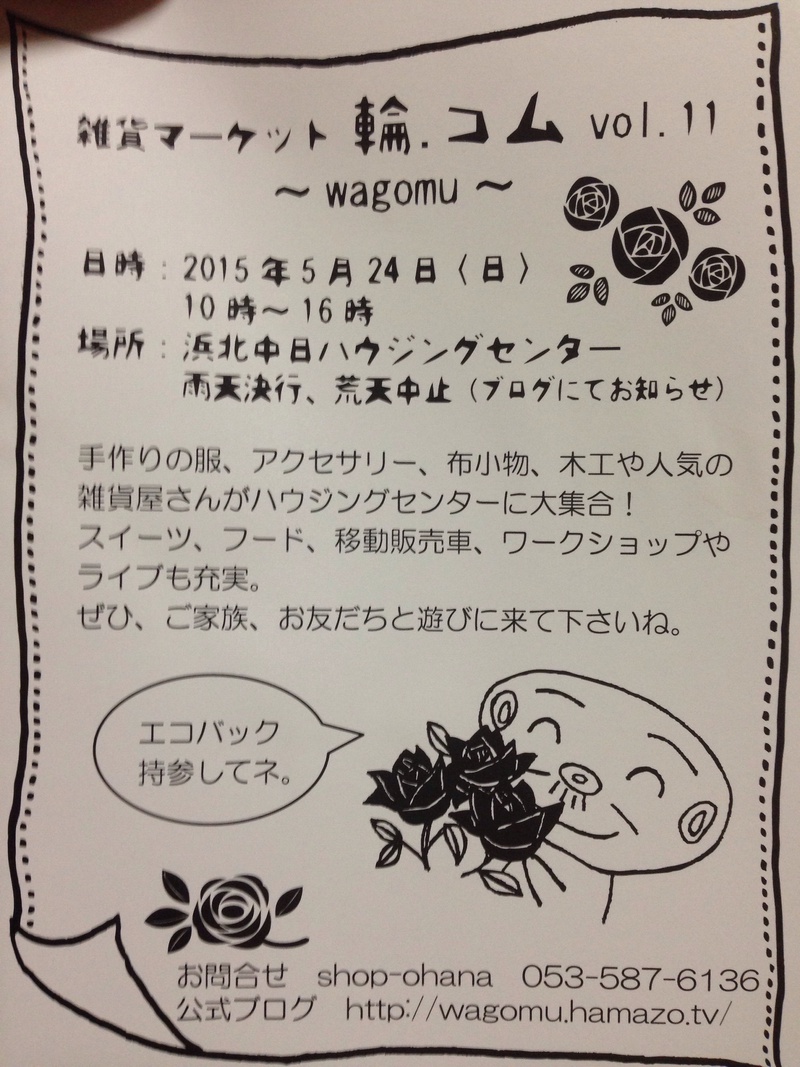 雑貨マーケット 輪.コム vol.11
～ wagomu ～
日時：2015年5月24日〈日〉
10時～16時
場所：浜北中日ハウジングセンター
雨天決行、荒天中止（ブログにてお知らせ）
手作りの服、アクセサリー、布小物、木工や人気の
雑貨屋さんがハウジングセンターに大集合！
スイーツ、フード、移動販売車、ワークショップや
ライブも充実。
ぜひ、ご家族、お友だちと遊びに来て下さいね。
エコバック
持参してネ。
お問合せ shop-ohana 053-587-6136
公式ブログ http://wagomu.hamazo.tv/